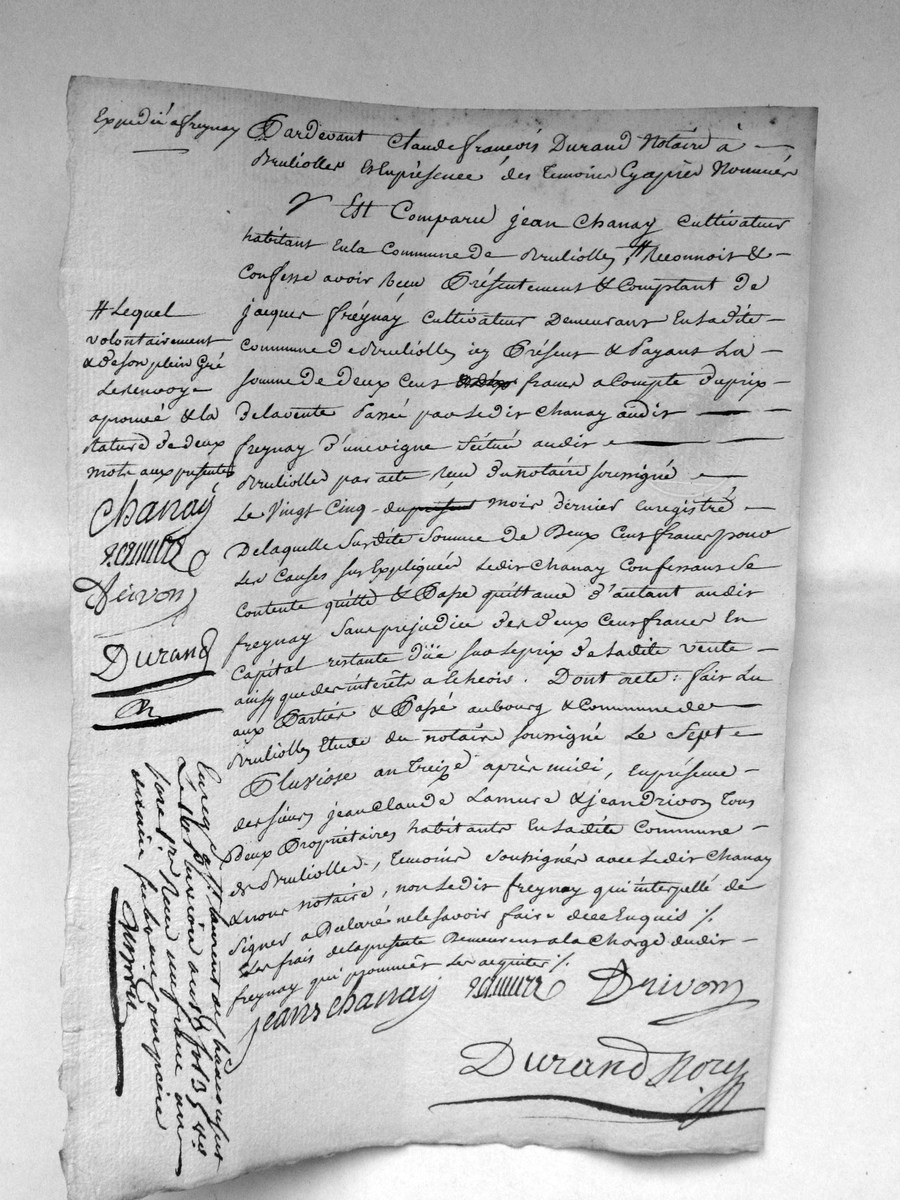 Expedié a freynay
Pardevant Claude francois Durand Notaire à
Brulliolles Enprésence des Temoins Cyaprès Nommés
Est Comparu jean Chanay Cultivateur
habitant Enla Commune de Brulliolles, # Reconnoit &
Confesse avoir Recu Présentement & Comptant de
jacques freÿnaÿ Cultivateur Demeurant Ensadite
Commune de Brulliolles icy Présent & Payant La
somme de deux Cent francs a Compte du prix
de la vente Passé par Ledit Chanay audit
freynay d'une vigne Scitué audit
Brulliolles par acte Recu du notaire soussigné
Le Vingt Cinq du présent mois dernier Enregistré
De laquelle Surdite Somme de Deux Cent francs pour
Les Causes sus Expliquées Ledit Chanay Confessant Se
Contente quitte & Passe quittance d'autant audit
freynay Sans prejudice des deux Cent francs En
Capital restante düe sur Le prix de Ladite vente
ainsy que des interêts a Echeoir. Dont acte: fait Lu
aux Parties & Passé au bourg & Commune de
Brulliolles Etude du notaire soussigné Le Sept
Pluviose an treize après midi, En présence
des sieurs jean Claude Lamure & jean Drivon Tous
Deux Propriétaires habitants En Ladite Commune
de Brulliolles, Temoins soussignés avec Ledit Chanay
& nous notaire, non Ledit freynay qui interpellé de
Signer a Declaré ne le savoir faire de ce Enquis %
Les frais de la presente Demeurent a la Charge dudit
freynay qui promêt Les acquitter %
jean chanaÿ Lamure Drivon
Durand Nore
# Lequel
volontairement
& de son plein Gré
Le renvoy
aprouvé & la
rature de deux
mots aux presentes
Chanaÿ
Lamure
Drivon
Durand
Enreg. a St laurent de Chamousset
Le Pluviose an 13 fol 3
Reçu un franc dix